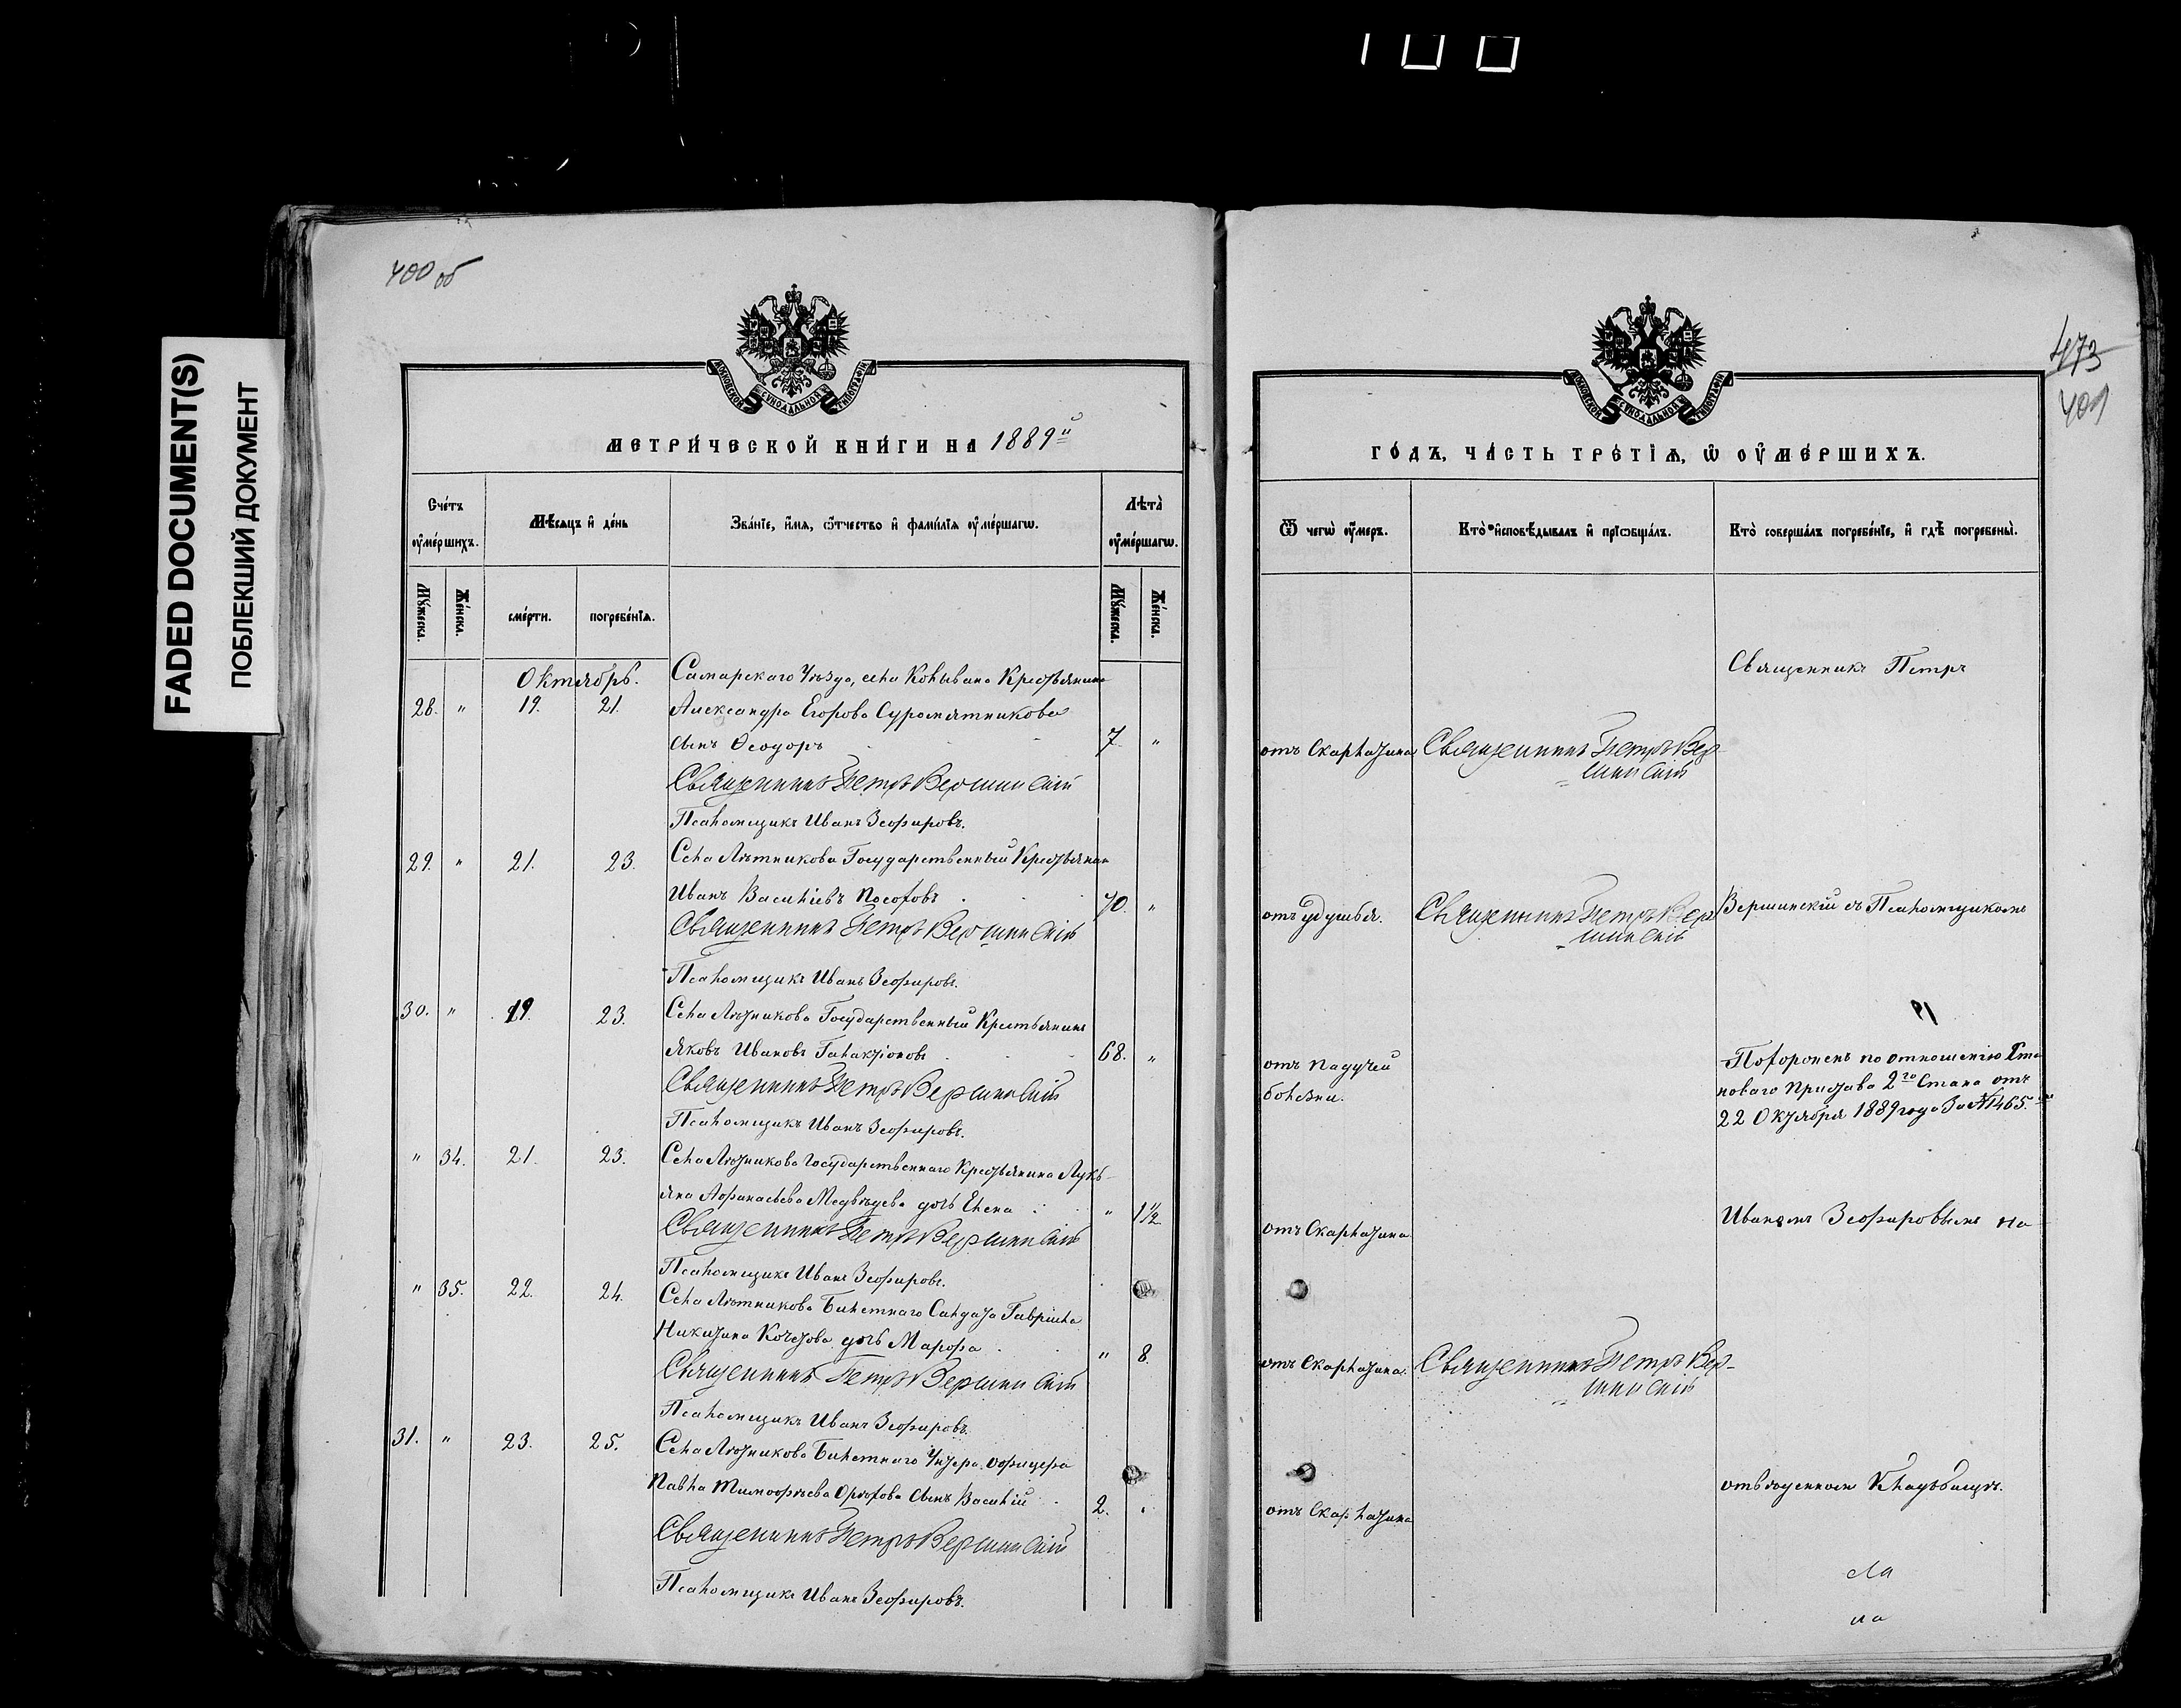 FADED DOCUMENT(S)
ПОБЛЕКШИЙ ДОКУМЕНТ
400 об
МОСКОВСКОЙ СѴНОДАЛЬНОЙ ТИПОГРАФІИ
МЕТРИ́ЧЕСКОЙ КНИ́ГИ НА 1889й
Счéтъ ᲂу҆мéршихъ.
Мѣ́сяцъ и҆ дéнь
Звáнїе, и҆́мѧ, ѻ҆́тчество и҆ фамѝлїѧ ᲂу҆мéршагѡ.
Лѣ́та ᲂу҆мéршагѡ.
Мꙋ́жеска.
Жéнска.
смéрти.
погребéнїѧ.
Мꙋ́жеска.
Жéнска.
Октябрь.
Самарскаго Уѣзда, села Колывана Крестьянина
28. " 19. 21. Александра Егорова Суромятникова
сынъ Ѳеодоръ 7. "
Священникъ Петръ Вершинскій
Псаломщикъ Иванъ Зефировъ.
29. " 21. 23. Села Лѣтникова Государственный Крестьянинъ
Иванъ Васильевъ 70. "
Священникъ Петръ Вершинскій
Псаломщикъ Иванъ Зефировъ.
30. " 19. 23. Села Лѣтникова Государственный Крестьянинъ
Яковъ Ивановъ Галактіоновъ 68. "
Священникъ Петръ Вершинскій
Псаломщикъ Иванъ Зефировъ.
" 34. 21. 23. Села Лѣтникова Государственнаго Крестьянина Лукь-
яна Афанасьева Медвѣдева дочь Елена " 1½
Священникъ Петръ Вершинскій
Псаломщикъ Иванъ Зефировъ.
" 35. 22. 24. Села Лѣтникова Билетнаго Салдата Гавріила
Никитина дочь Марфа " 8.
Священникъ Петръ Вершинскій
Псаломщикъ Иванъ Зефировъ.
31. " 23. 25. Села Лѣтникова Билетнаго Унтера офицера
Павла Тимофѣева Орѣхова сынъ Василій 2. "
Священникъ Петръ Вершинскій
Псаломщикъ Иванъ Зефировъ.
473
401
МОСКОВСКОЙ СѴНОДАЛЬНОЙ ТИПОГРАФІИ
ГÓДЪ, ЧÁСТЬ ТРÉТЇѦ, Ѡ҆ ОУ҆МÉРШИХЪ.
Ѿ чегѡ̀ ᲂу҆́меръ.
Ктò и҆сповѣ́дывалъ и҆ прїѡбщáлъ.
Ктò совершáлъ погребéнїе, и҆ гдѣ̀ погребены̀.
Священникъ Петръ
отъ Скарлатина Священникъ Петръ Вер-
шинскій
отъ удушья. Священникъ Петръ Вер-
шинскій
Вершинскій съ Псаломщикомъ
отъ падучей
болѣзни.
Похороненъ по отношенію Ста-
новаго Пристава 2го Стана отъ
22 Октября 1889 года За № 1465.
отъ Скарлатина
Иваномъ Зефировымъ на
отъ Скарлатина. Священникъ Петръ Вер-
шинскій
отъ Скарлатина
отведенномъ Кладбищѣ.